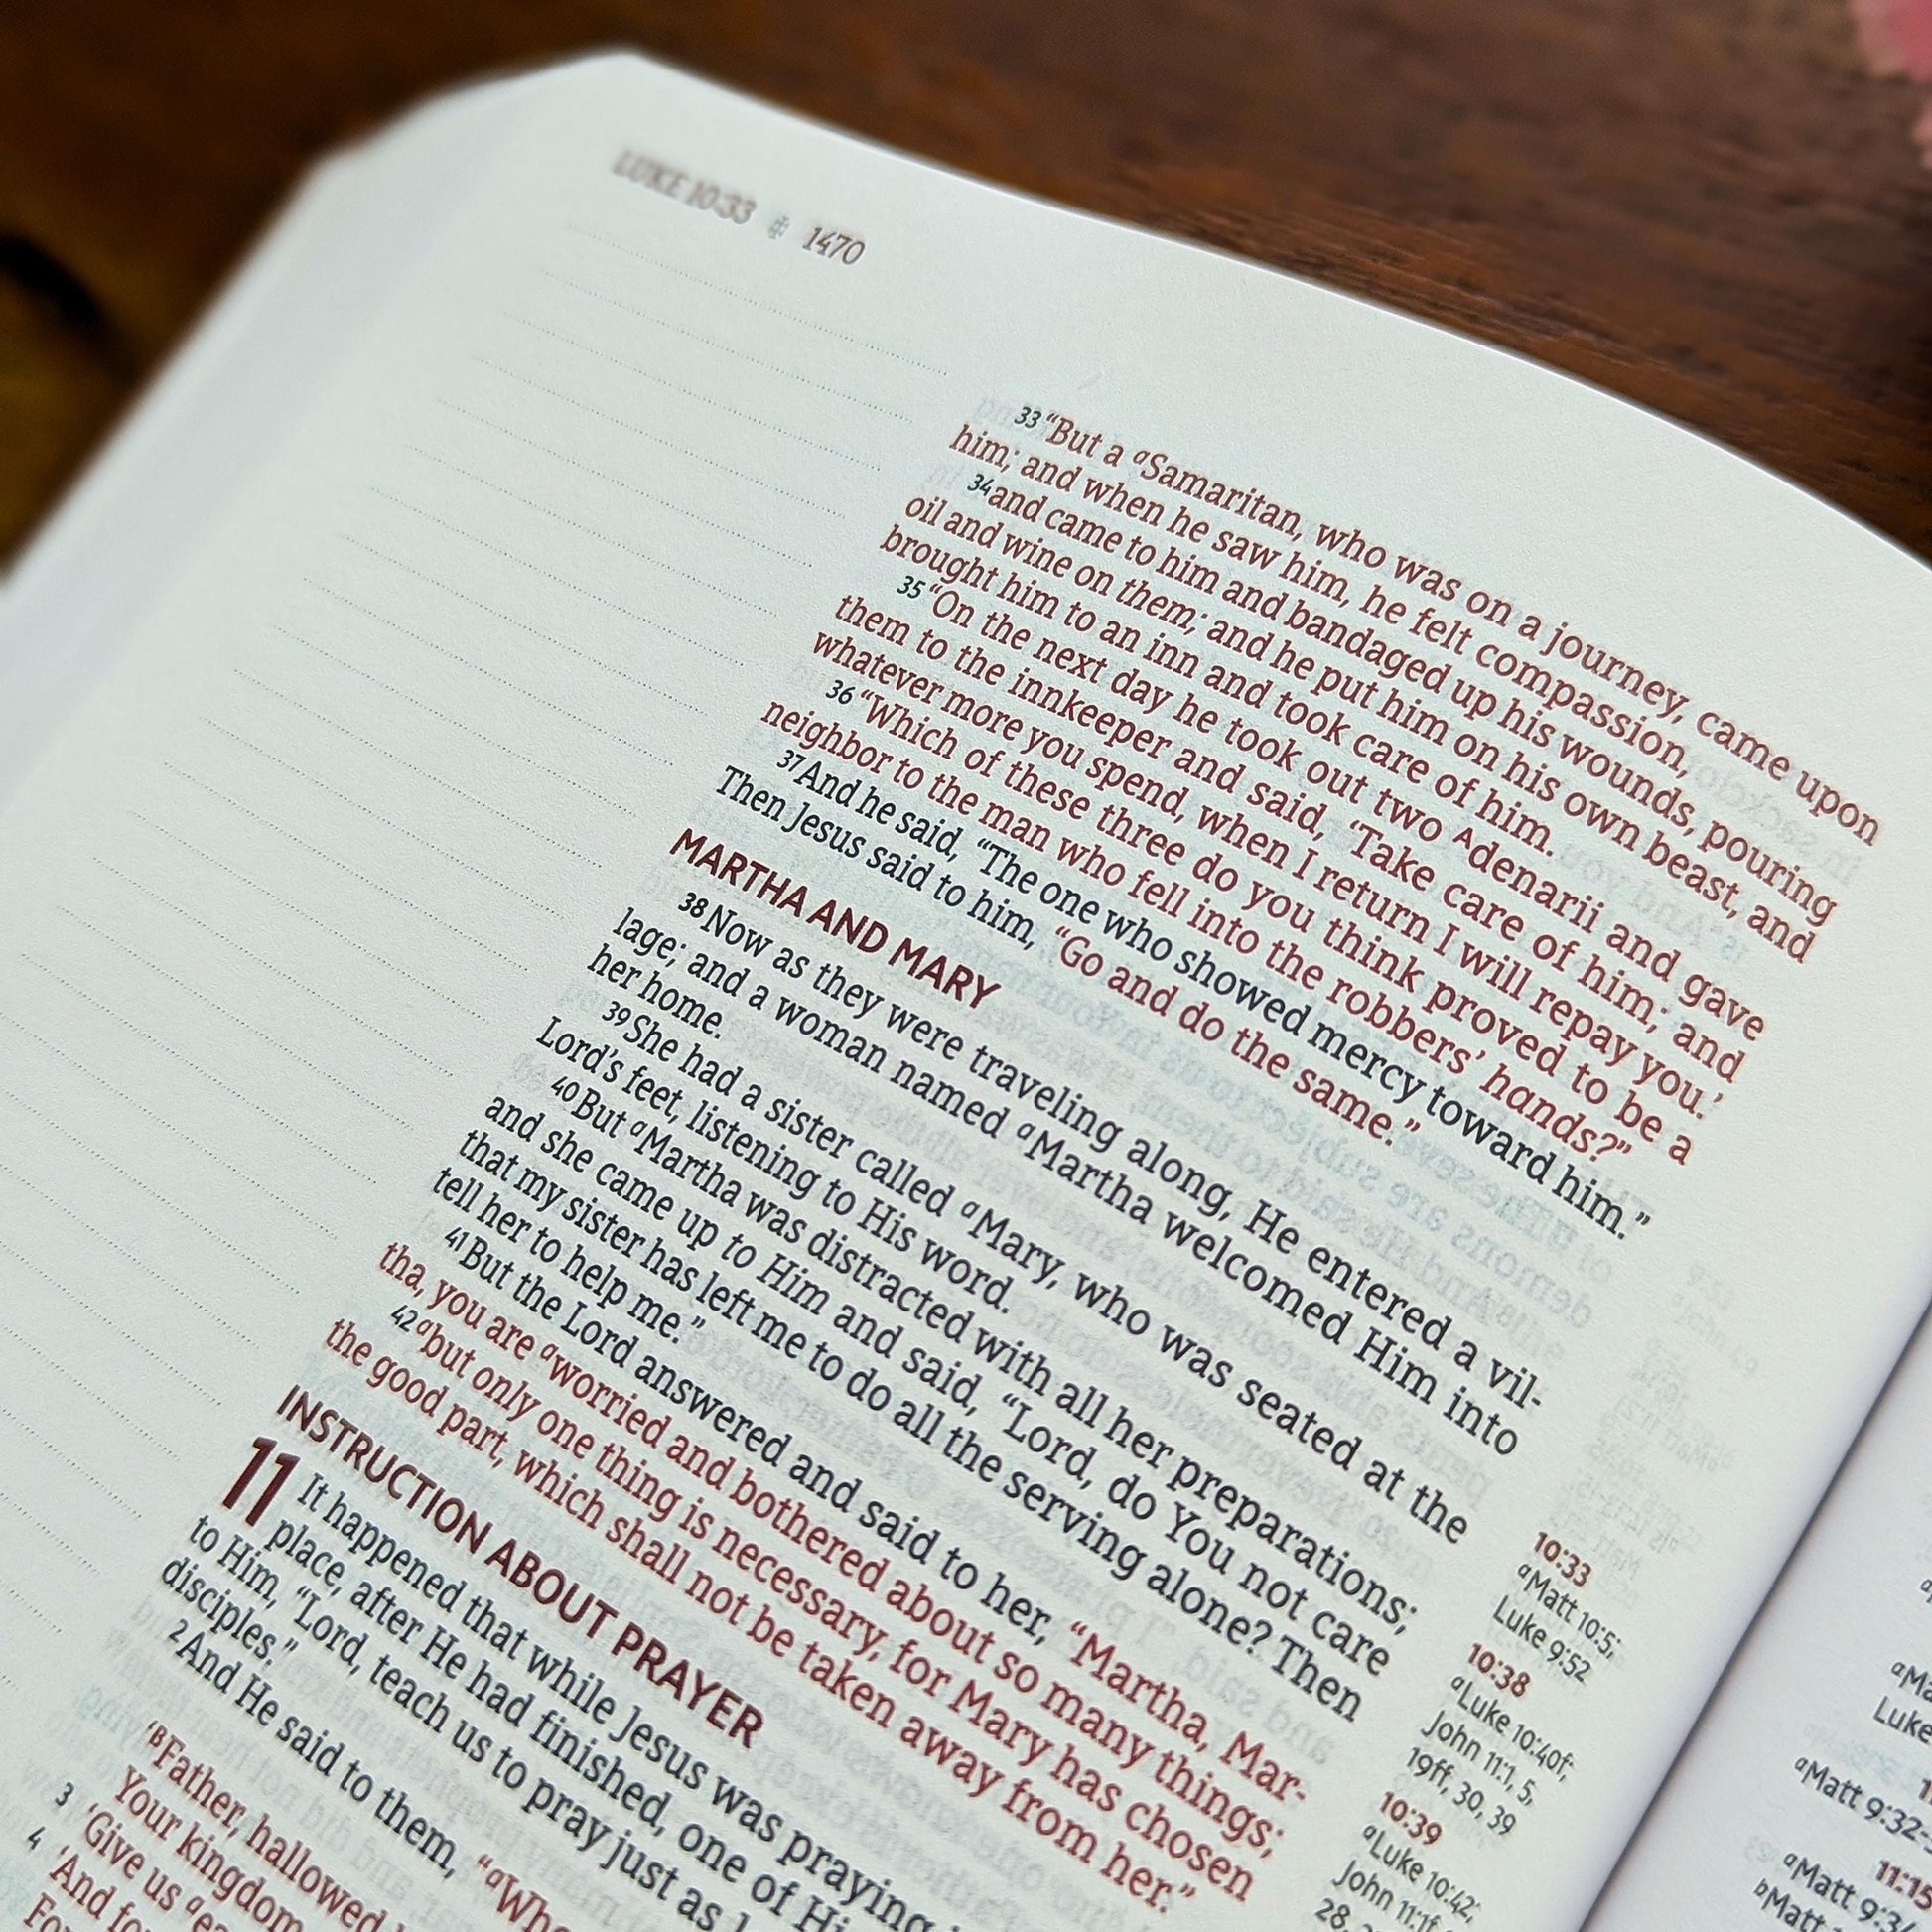 LUKE 10:33 1470
33 “But a aSamaritan, who was on a journey, came upon
him; and when he saw him, he felt compassion,
34 and came to him and bandaged up his wounds, pouring
oil and wine on them; and he put him on his own beast, and
brought him to an inn and took care of him.
35 “On the next day he took out two Adenarii and gave
them to the innkeeper and said, ‘Take care of him; and
whatever more you spend, when I return I will repay you.’
36 “Which of these three do you think proved to be a
neighbor to the man who fell into the robbers’ hands?”
37 And he said, “The one who showed mercy toward him.”
Then Jesus said to him, “Go and do the same.”
MARTHA AND MARY
38 Now as they were traveling along, He entered a vil-
lage; and a woman named aMartha welcomed Him into
her home.
39 She had a sister called aMary, who was seated at the
Lord’s feet, listening to His word.
40 But aMartha was distracted with all her preparations;
and she came up to Him and said, “Lord, do You not care
that my sister has left me to do all the serving alone? Then
tell her to help me.”
41 But the Lord answered and said to her, “Martha, Mar-
tha, you are aworried and bothered about so many things;
42 abut only one thing is necessary, for Mary has chosen
the good part, which shall not be taken away from her.”
INSTRUCTION ABOUT PRAYER
11 It happened that while Jesus was praying
place, after He had finished, one of
to Him, “Lord, teach us to pray just as
disciples.”
2 And He said to them,
‘BFather, hallowed
Your kingdom
3 ‘Give us
4 ‘And
10:33
aMatt 10:5;
Luke 9:52
10:38
aLuke 10:40f;
John 11:1, 5,
19ff, 30, 39
10:39
aLuke 10:42;
John 11:1f
28,
Luke
aMatt 9:32-
11:15
aMatt 9:34
bMatt